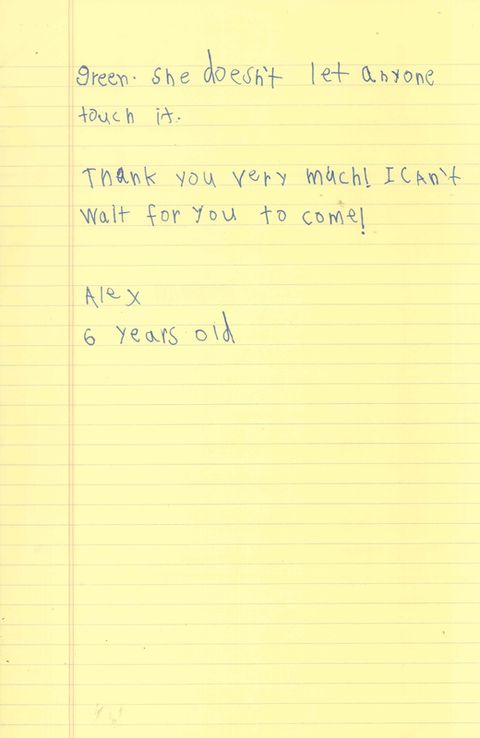 green. she doesn't let anyone
touch it.
Thank you very much! I CAn't
wait for you to come!
Alex
6 years old